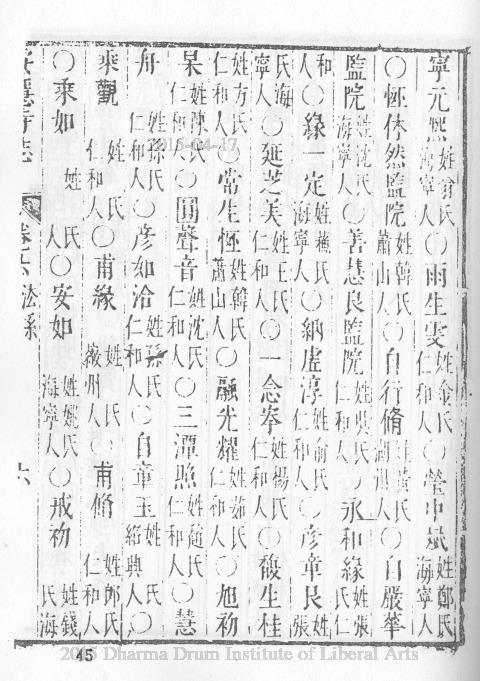 寧元熙姓俞氏海寧人〇雨生雯姓金氏仁和人〇瑩中斌姓鄭氏海寧人
〇恆休然監院姓韓氏蕭山人〇自行脩姓黃氏湖州人〇自嚴華
監院姓沈氏海寧人〇善慧良監院姓吳氏仁和人〇永和緣姓張氏仁
和人〇緣一定姓氏海寧人〇納虛淳姓俞氏仁和人〇彥章艮姓張
氏海寧人〇延芝美姓王氏仁和人〇一念峯姓楊氏仁和人〇馥生桂
姓方氏仁和人〇常生恆姓韓氏蕭山人〇融光耀姓茹氏仁和人〇旭初
杲姓陳氏仁和人〇圓聲音姓沈氏仁和人〇三潭照姓趙氏仁和人〇慧
舟姓孫氏仁和人〇彥如洽姓孫氏仁和人〇自章玉姓氏紹興人〇
乘觀姓氏仁和人〇甫緣姓氏徽州人〇甫脩姓郎氏仁和人
〇乘如姓氏人〇安如姓姚氏海寧人〇戒初姓錢氏海
安隱寺志 卷六法系 六
2015-04-17
45
Dharma Drum Institute of Liberal Arts